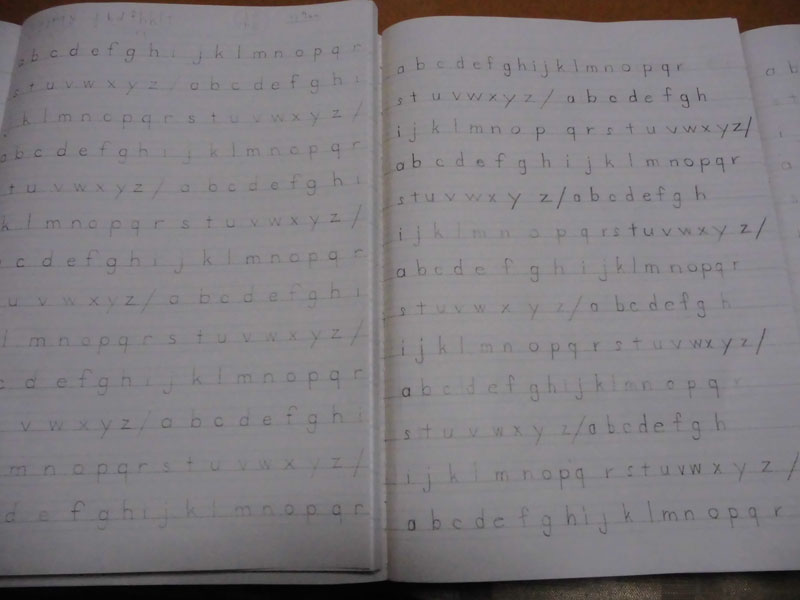 a b c d e f g h i j k l m n o p q r
s t u v w x y z / a b c d e f g h i
k l m n o p q r s t u v w x y z /
a b c d e f g h i j k l m n o p q r
s t u v w x y z / a b c d e f g h i
k l m n o p q r s t u v w x y z /
c d e f g h i j k l m n o p q r
u v w x y z / a b c d e f g h i
l m n o p q r s t u v w x y z /
c d e f g h i j k l m n o p q r
v w x y z / a b c d e f g h i
m n o p q r s t u v w x y z /
d e f g h i j k l m n o p q r
a b c d e f g h i j k l m n o p q r
s t u v w x y z / a b c d e f g h
i j k l m n o p q r s t u v w x y z /
a b c d e f g h i j k l m n o p q r
s t u v w x y z / a b c d e f g h
i j k l m n o p q r s t u v w x y z /
a b c d e f g h i j k l m n o p q r
s t u v w x y z / a b c d e f g h
i j k l m n o p q r s t u v w x y z /
a b c d e f g h i j k l m n o p q r
s t u v w x y z / a b c d e f g h
i j k l m n o p q r s t u v w x y z /
a b c d e f g h i j k l m n o p q r
a b
s
i
a